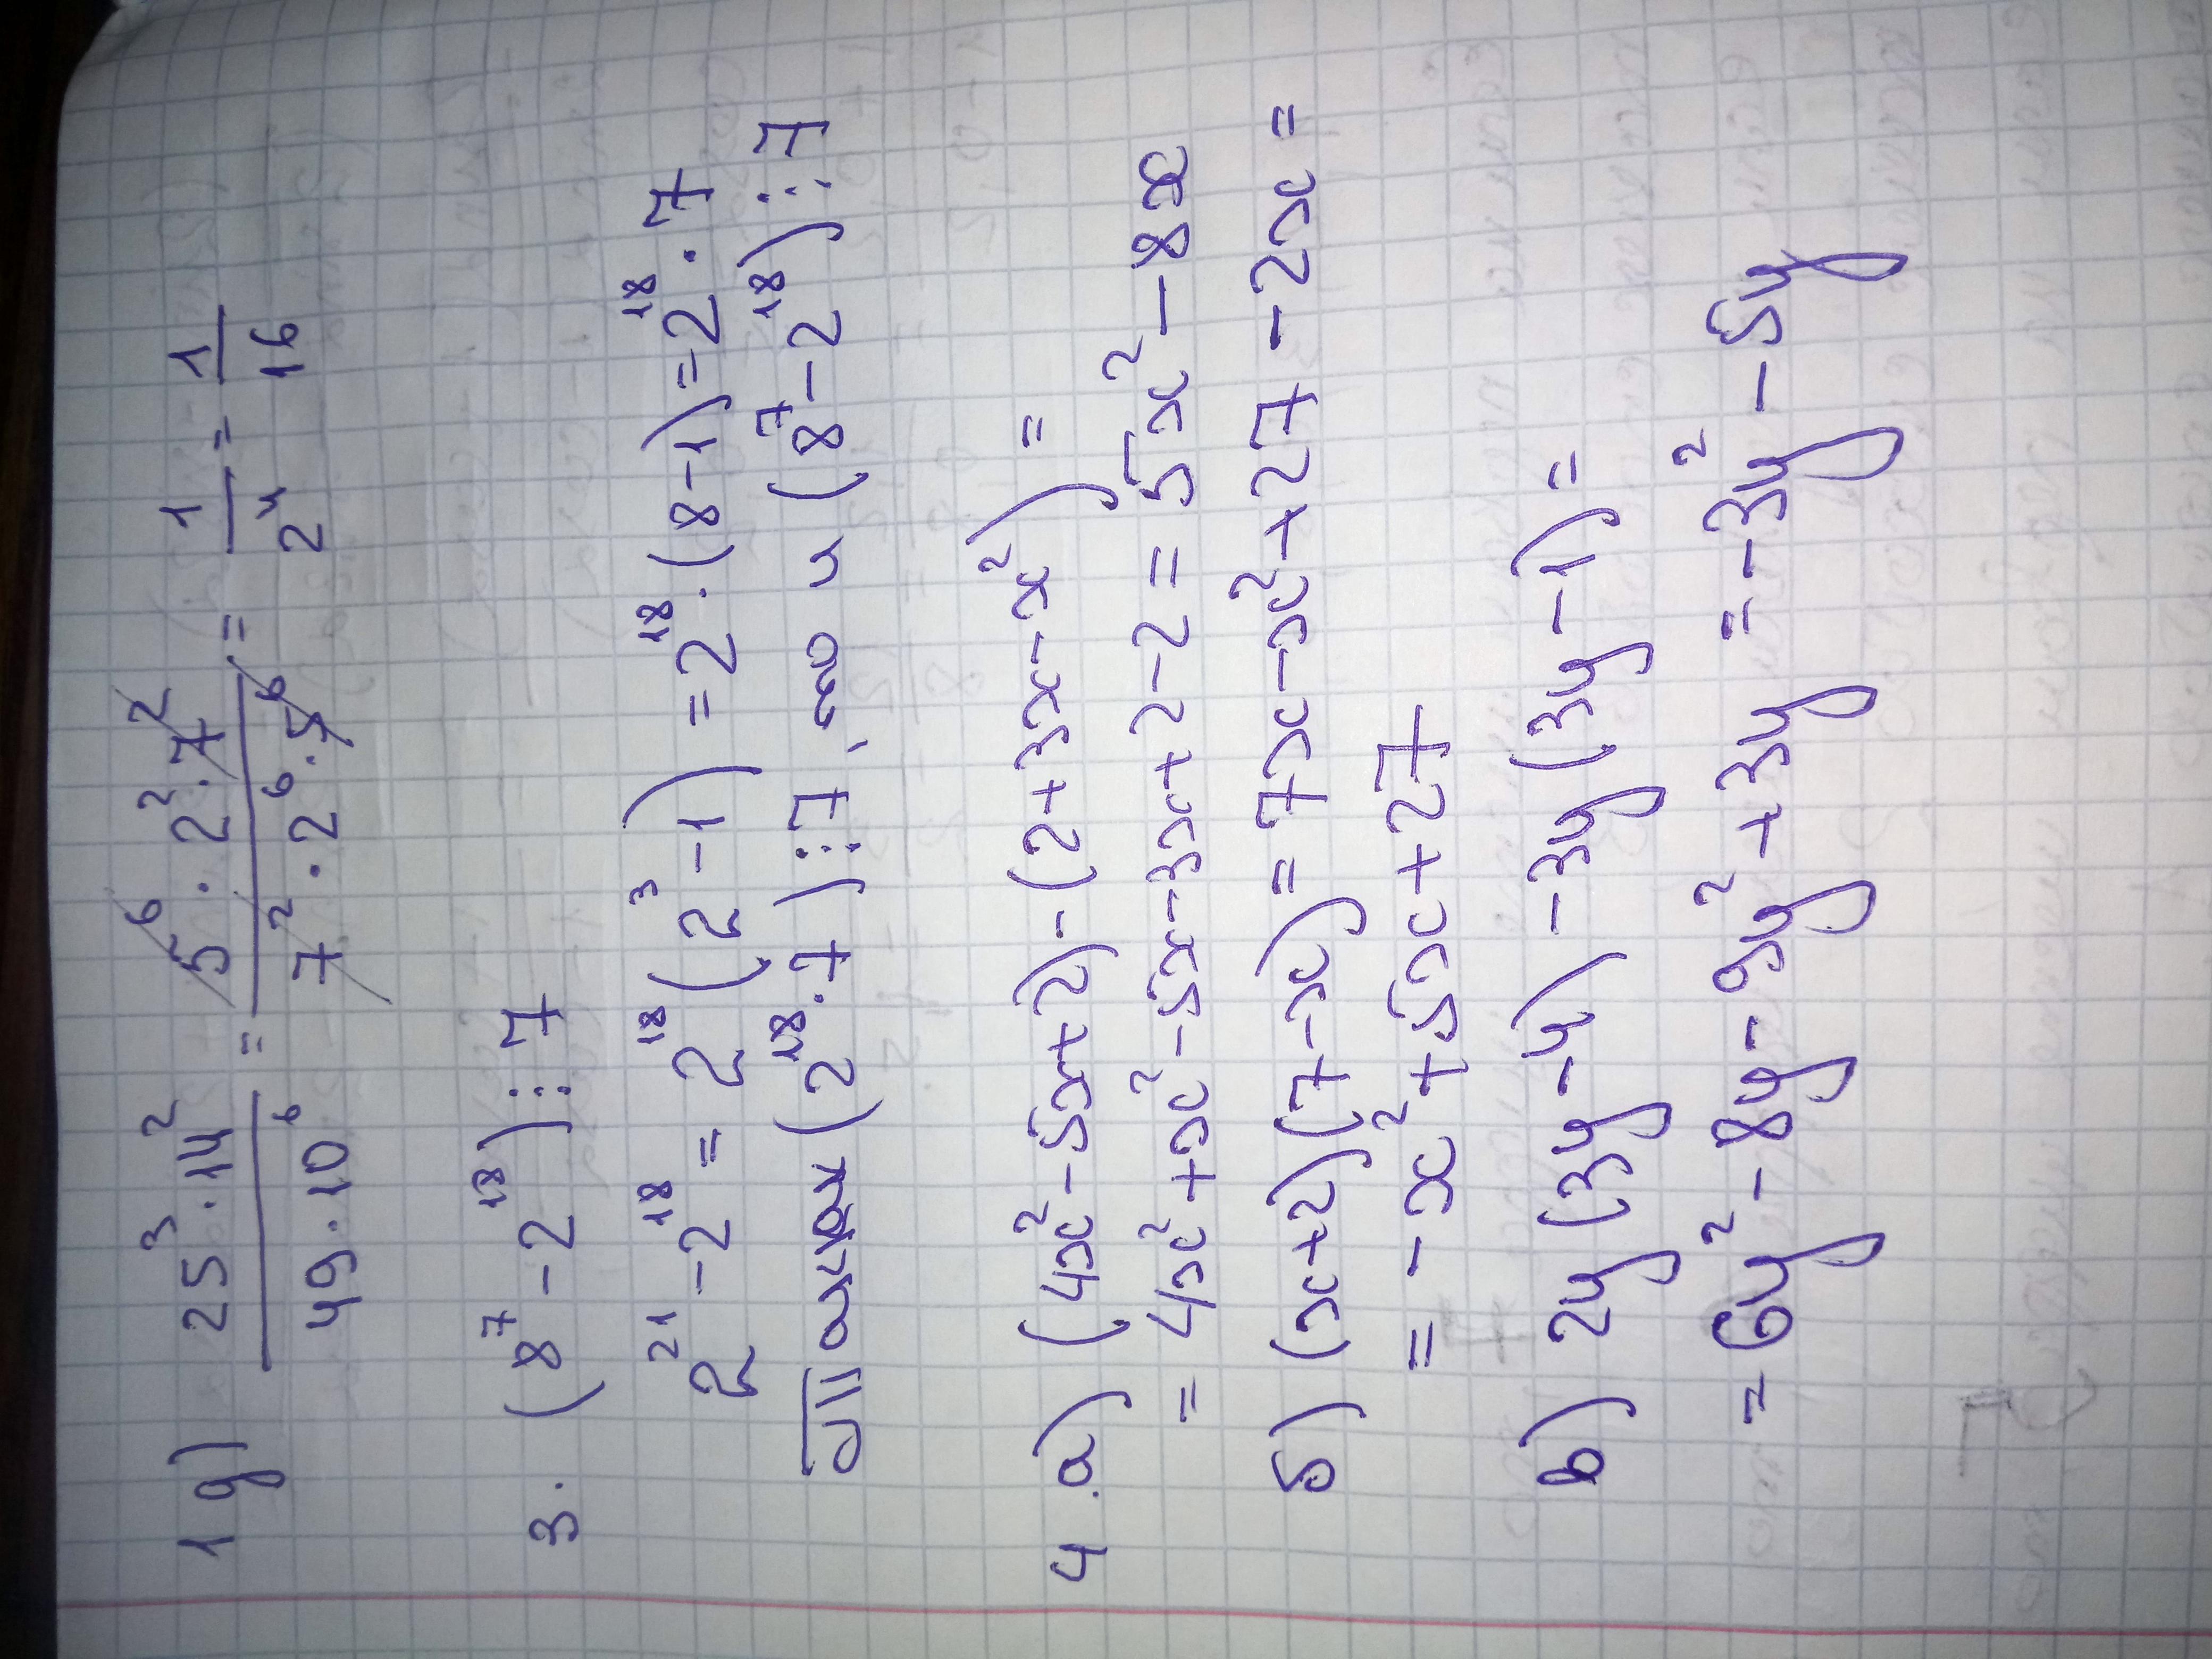 1 g) 25³·14² / 49·10⁶ = 5⁶·2²·7² / 7²·2⁶·5⁶ = 1/2⁴ = 1/16
3. (8⁷-2¹⁸)⋮7
2²¹-2¹⁸=2¹⁸(2³-1)=2¹⁸·(8-1)=2¹⁸·7
(2¹⁸·7)⋮7, то и (8⁷-2¹⁸)⋮7
4.а) (4x²-5x+2)-(2+3x-x²)=
=4x²+x²-5x-3x+2-2=5x²-8x
б) (x+2)(7-x)=7x-x²+27-2x=
=-x²+5x+27
в) 2y(3y-4)-3y(3y-1)=
=6y²-8y-9y²+3y=-3y²-5y